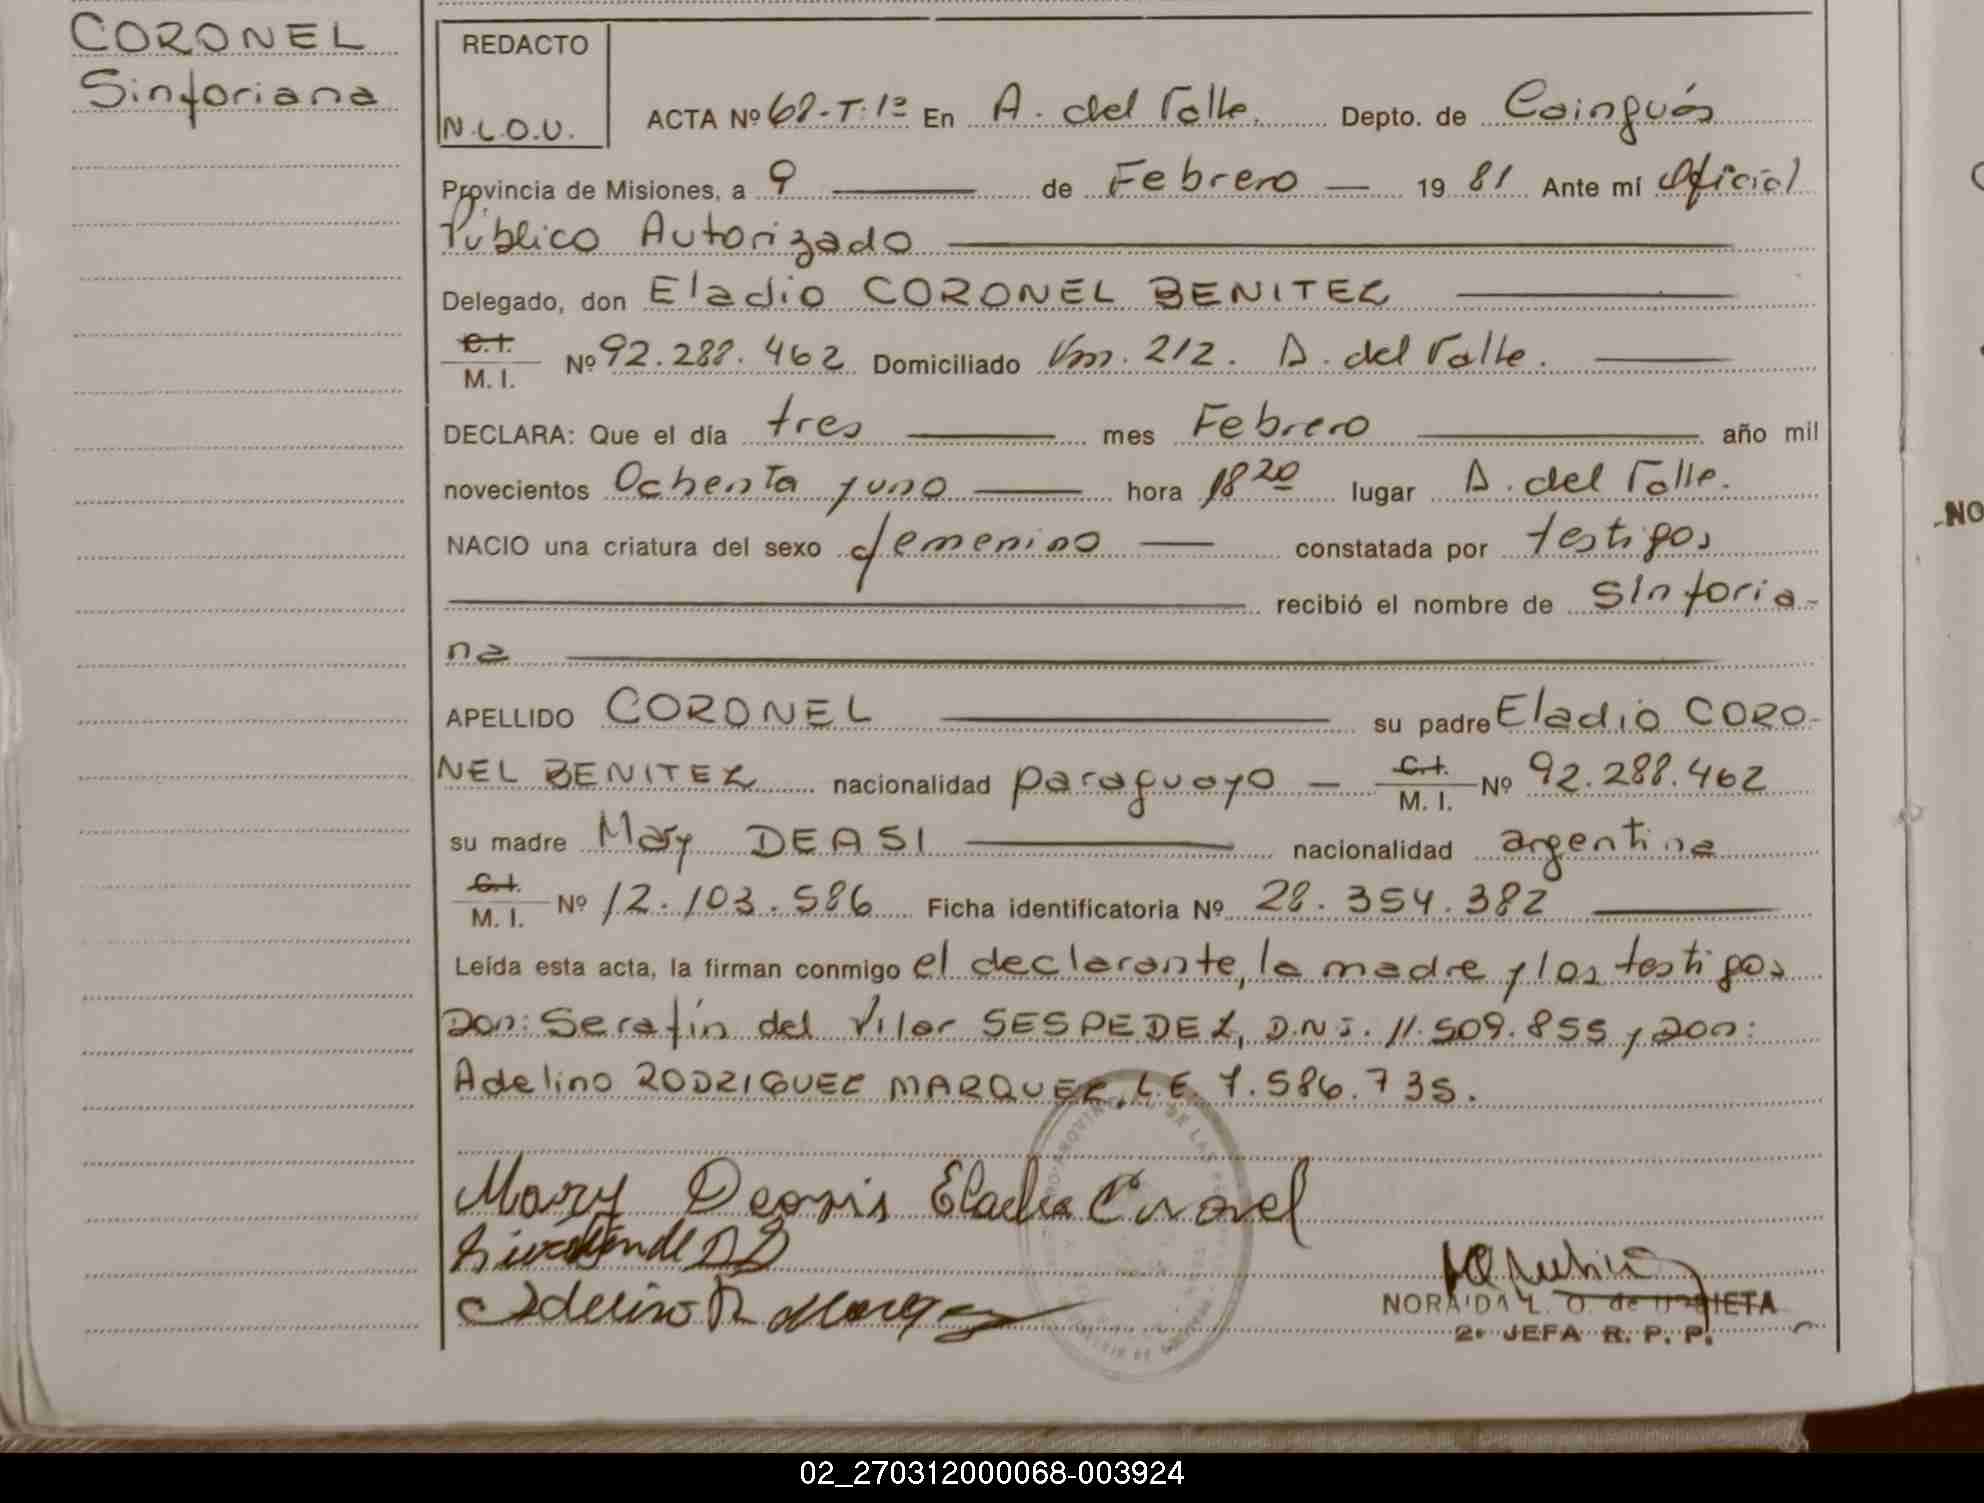 CORONEL
Sinforiana
REDACTO
N.L.O.U.
ACTA Nº 68-T.1º En A. del Valle. Depto. de Cainguás
Provincia de Misiones, a 9 de Febrero 19 81 Ante mí Oficial
Público Autorizado
Delegado, don Eladio CORONEL BENITEZ
C.I.
M. I. Nº 92.288.462 Domiciliado Km. 212. A. del Valle.
DECLARA: Que el día tres mes Febrero año mil
novecientos Ochenta y uno hora 18 20 lugar A. del Valle.
NACIO una criatura del sexo femenino constatada por testigos
recibió el nombre de Sinforia-
na
APELLIDO CORONEL su padre Eladio CORO-
NEL BENITEZ nacionalidad paraguayo C.I. M. I. Nº 92.288.462
su madre Mary DEASI nacionalidad argentina
C.I.
M. I. Nº 12.103.586 Ficha identificatoria Nº 28.354.382
Leída esta acta, la firman conmigo el declarante, la madre y los testigos
Don: Serafín del Vilar SESPEDEZ, D.N.I. 11.509.855 y Don:
Adelino RODRIGUEZ MARQUEZ, L.E. 7.586.735.
Mary Eladio Coronel
Adelino R.
NORAIDA L. O. de
2º JEFA R. P. P.
NO
02_270312000068-003924